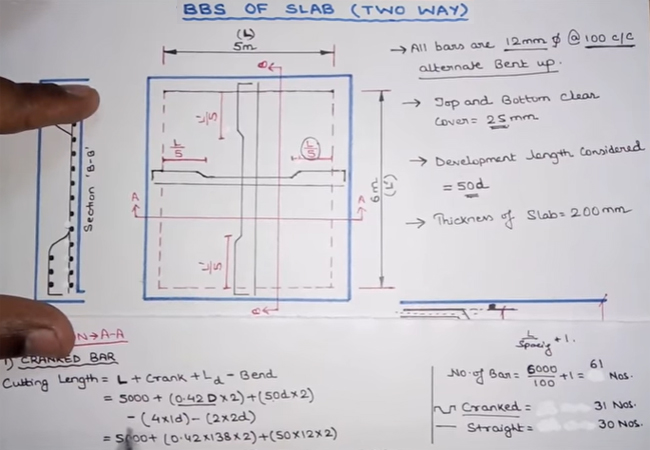 BBS OF SLAB (TWO WAY)
(L)
5m
B
L/5
L/5
L/5
L/5
A
A
6m
(L)
B
Section 'B-B'
→ All bars are 12mm ϕ @ 100 c/c
alternate Bent up.
→ Top and Bottom Clear
Cover = 25mm
→ Development length Considered
= 50d
→ Thickness of Slab = 200mm
ON → A-A
1) CRANKED BAR
Cutting Length = L + Crank + Ld - Bend
= 5000 + (0.42 D × 2) + (50d × 2)
- (4×1d) - (2×2d)
= 5000 + (0.42×138×2) + (50×12×2)
L/Spacing + 1.
No. of Bar = 6000/100 + 1 = 61 Nos.
Cranked = 31 Nos.
Straight = 30 Nos.